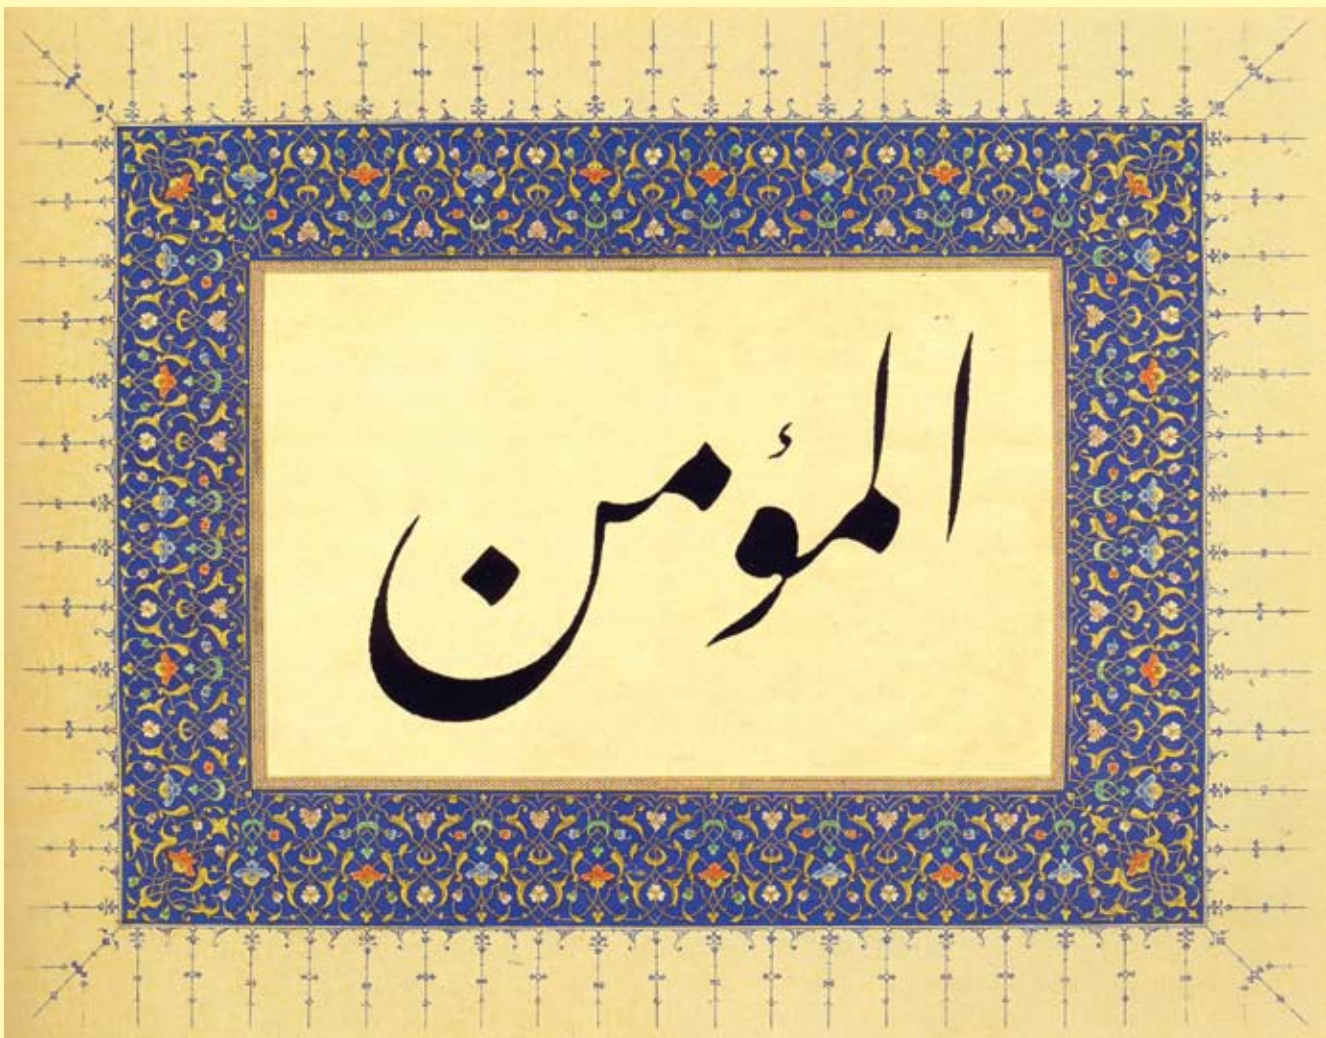 المؤمن